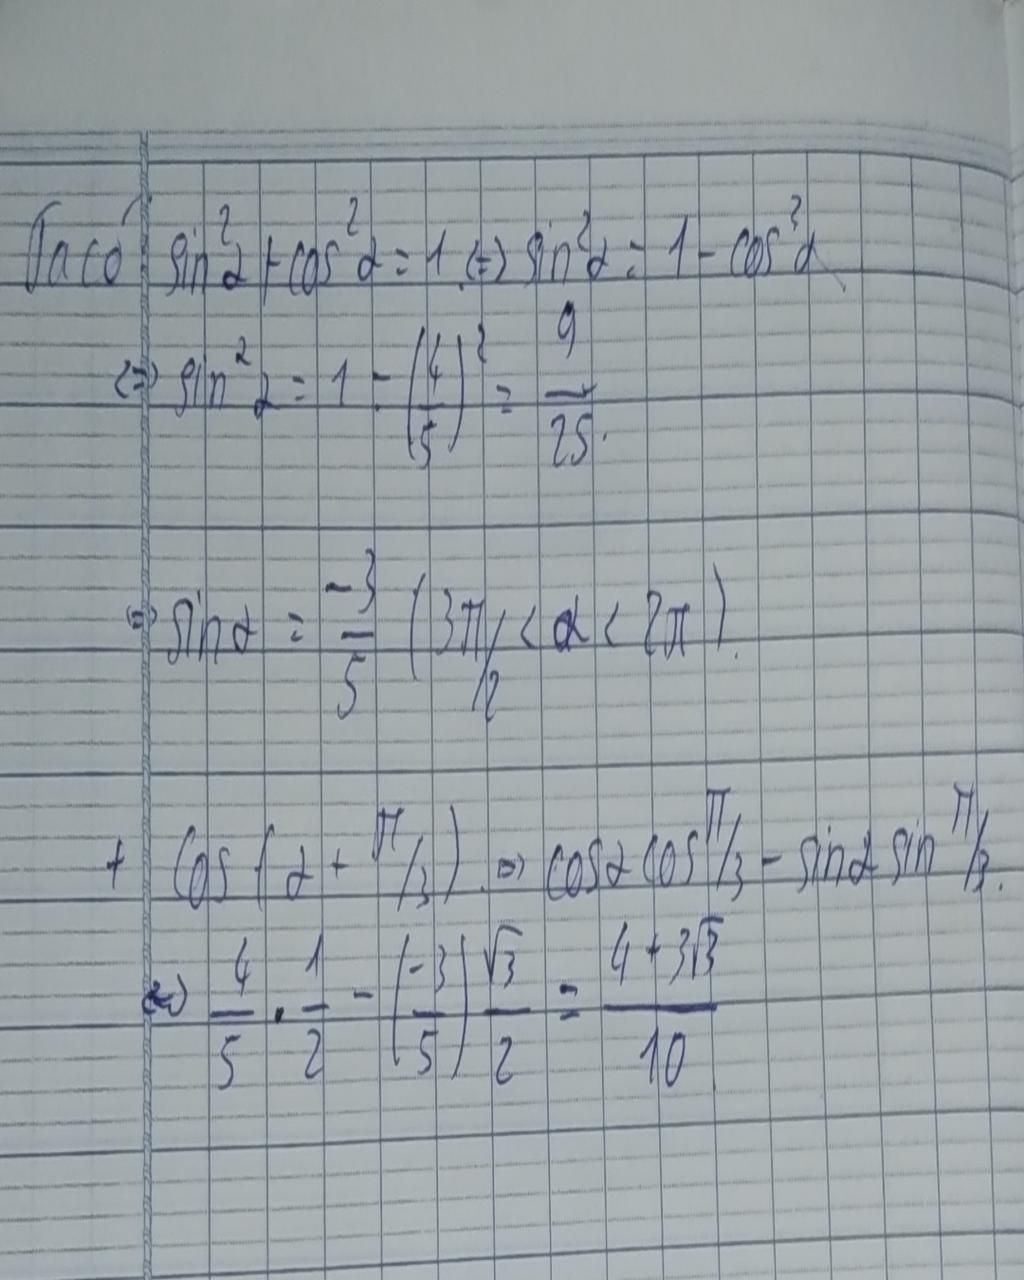 Ta có sin²α + cos²α = 1 (=) sin²α = 1 - cos²α
(=) sin²α = 1 - (4/5)² = 9/25.
=) sinα = -3/5 (3π/2 < α < 2π).
+ Cos(α + π/3). =) cosα cos π/3 - sinα sin π/3.
(=) 4/5 . 1/2 - (-3/5) √3/2 = 4+3√3/10